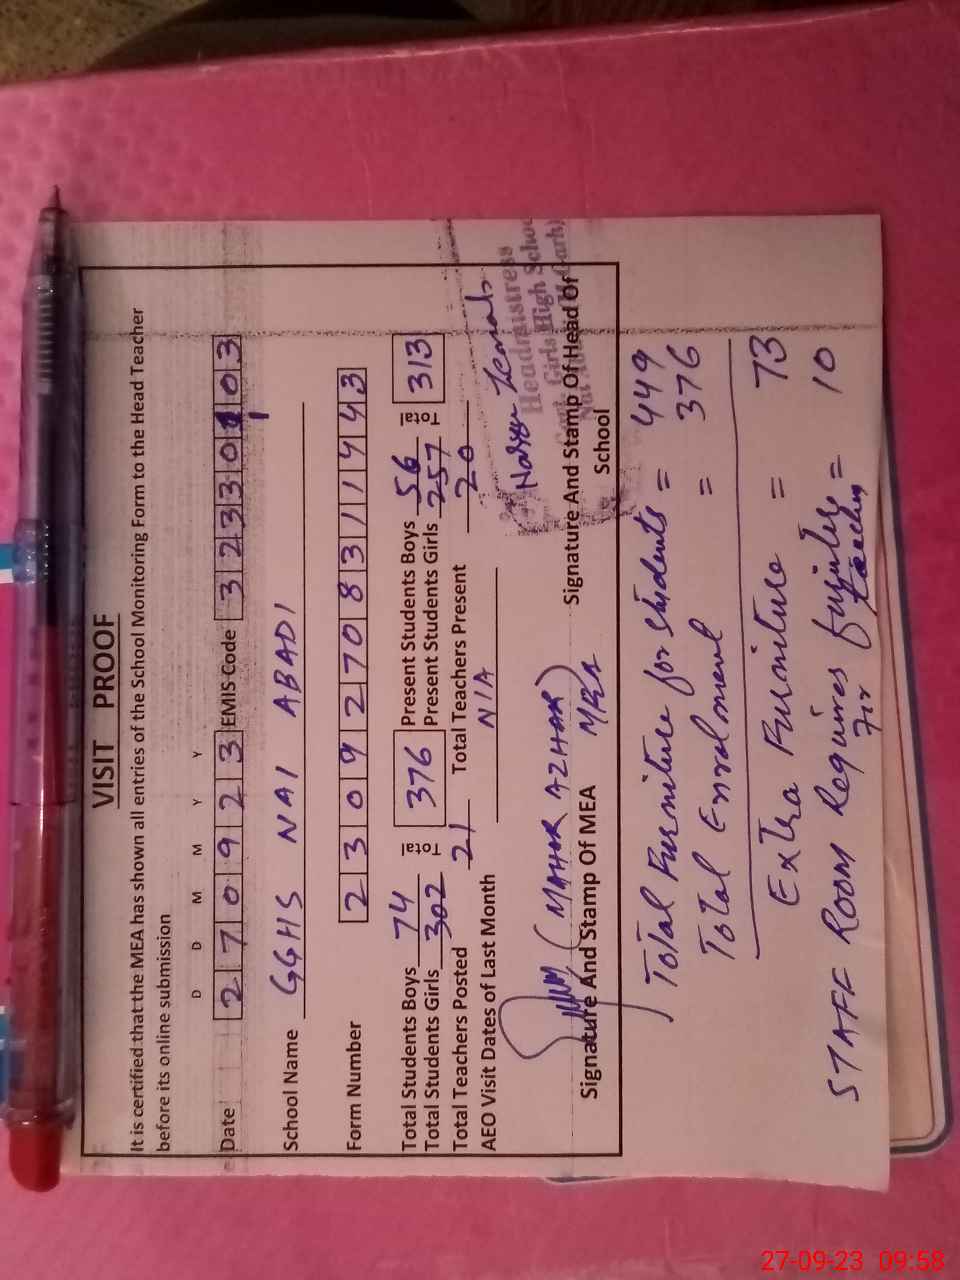 VISIT PROOF
It is certified that the MEA has shown all entries of the School Monitoring Form to the Head Teacher
before its online submission
D D M M Y Y
Date 270923 EMIS Code 32330103
School Name GGHS NAI ABADI
Form Number 2309270831143
Total Students Boys 74 Total 376 Present Students Boys 56 Total 313
Total Students Girls 302 Present Students Girls 257
Total Teachers Posted 21 Total Teachers Present 20
AEO Visit Dates of Last Month N/A
(MAHAR AZHAR)
MEA
Headmistress
Girls High School
Signature And Stamp Of MEA Signature And Stamp Of Head Of
School
Total Furniture for students = 449
Total Enrolment = 376
Extra Furniture = 73
STAFF Room Requires furniture = 10
For Teachers
27-09-23 09:58